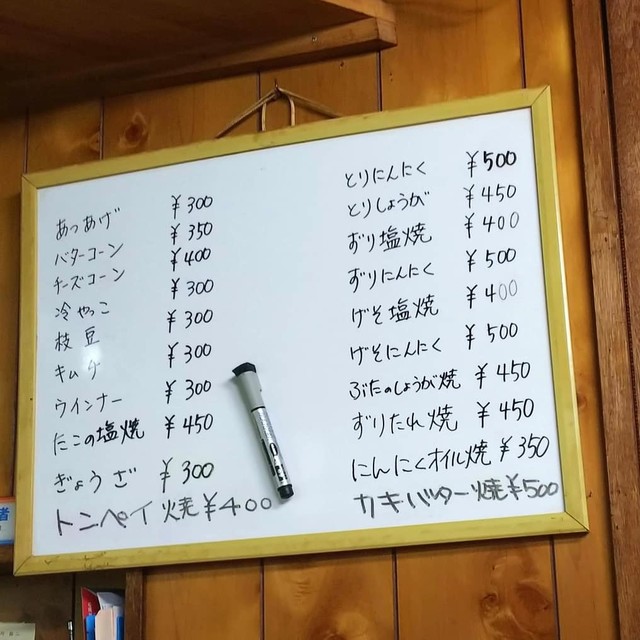 あつあげ ¥300
バターコーン ¥350
チーズコーン ¥400
冷やっこ ¥300
枝豆 ¥300
キムチ ¥300
ウインナー ¥300
たこの塩焼 ¥450
ぎょうざ ¥300
トンペイ焼 ¥400
とりにんにく ¥500
とりしょうが ¥450
ずり塩焼 ¥400
ずりにんにく ¥500
げそ塩焼 ¥400
げそにんにく ¥500
ぶたのしょうが焼 ¥450
ずりたれ焼 ¥450
にんにくオイル焼 ¥350
カキバター焼 ¥500
者